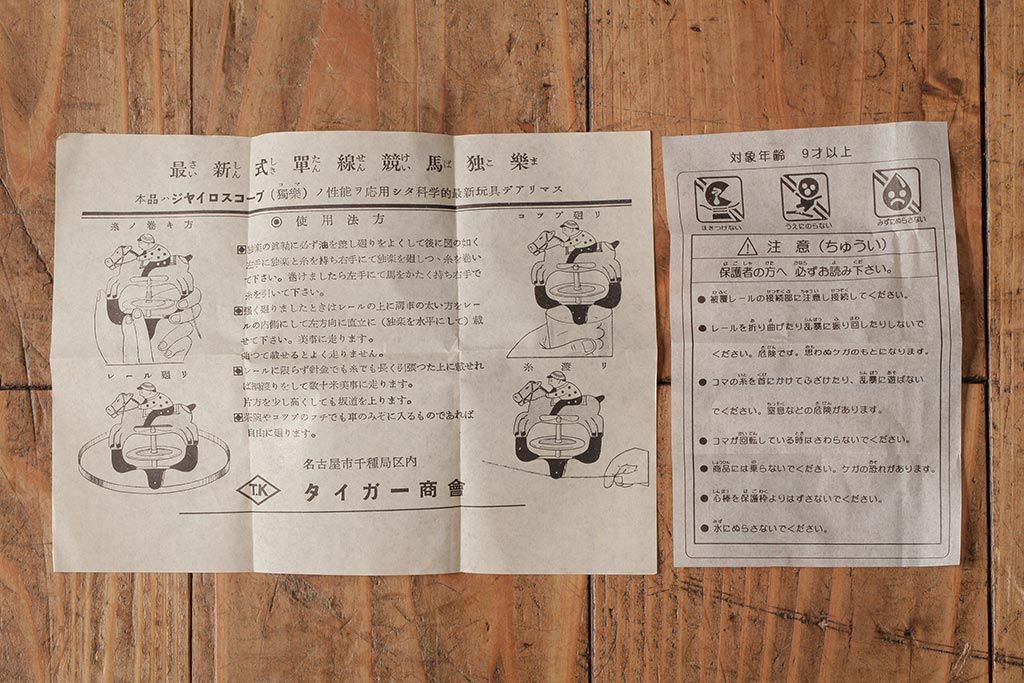 最新式單線競馬独樂
さいしんしきたんせんけいばこま
本品ハジヤイロスコープ(獨樂)ノ性能ヲ応用シタ科学的最新玩具デアリマス
コマ
糸ノ巻キ方
◉ 使用法方
コツプ廻リ
独楽の真軸に必ず油を差し廻りをよくして後に図の如く
左手に独楽と糸を持ち右手にて独楽を廻しつゝ糸を巻い
て下さい。巻けましたら左手にて馬をかたく持ち右手で
糸を引いて下さい。
強く廻りましたときはレールの上に溝車の太い方をレー
ルの内側にして左方向に直立に(独楽を水平にして)載
せて下さい。美事に走ります。
傾つて載せるとよく走りません。
レール廻リ
糸渡リ
レールに限らず針金でも糸でも長く引張つた上に載せれ
ば綱渡りをして数十米美事に走ります。
片方を少し高くしても坂道を上ります。
茶碗やコツプのフチでも車のみぞに入るものであれば
自由に廻ります。
名古屋市千種局区内
T.K タイガー商會
対象年齢 9才以上
ほきつけない
うえにのらない
みずにぬらさない
注意(ちゅうい)
ほごしゃ かた かなら よ くだ
保護者の方へ 必ずお読み下さい。
● 被覆レールの接続部に注意し接続してください。
● レールを折り曲げたり乱暴に振り回したりしないで
ください。危険です。思わぬケガのもとになります。
● コマの糸を首にかけてふざけたり、乱暴に遊ばない
でください。窒息などの危険があります。
● コマが回転している時はさわらないでください。
● 商品には乗らないでください。ケガの恐れがあります。
● 心棒を保護枠よりはずさないでください。
● 水にぬらさないでください。